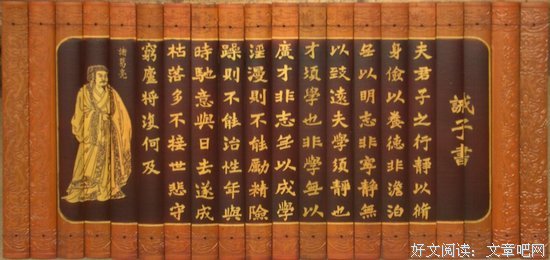 誡子書
夫君子之行靜以脩
身儉以養德非澹泊
無以明志非寧靜無
以致遠夫學須靜也
才須學也非學無以
廣才非志無以成學
淫漫則不能勵精險
躁則不能治性年與
時馳意與日去遂成
枯落多不接世悲守
窮廬將復何及
諸葛亮
好文阅读：文章吧网